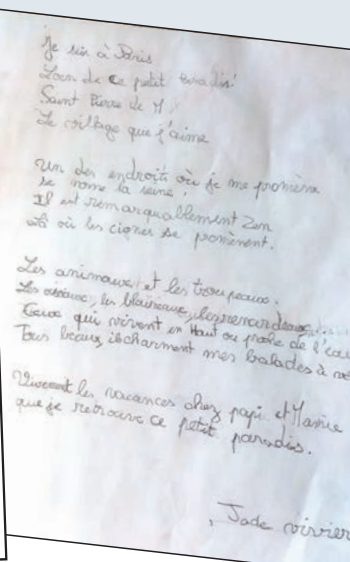 Je suis à Paris
Loin de ce petit paradis
Saint Pierre de M
Le village que j'aime
Un des endroits où je me promène
se nome la seine.
Il est remarquablement Zen
Là où les cignes se promènent.
Les animaux et les troupeaux.
Les oiseaux, les blaireaux, les renardeaux,
Ceux qui vivent en Haut ou proche de l'eau
Tous beaux, ils charment mes balades à
Vivement les vacances chez papi et Mamie
que je retrouve ce petit paradis.
Jade vivier